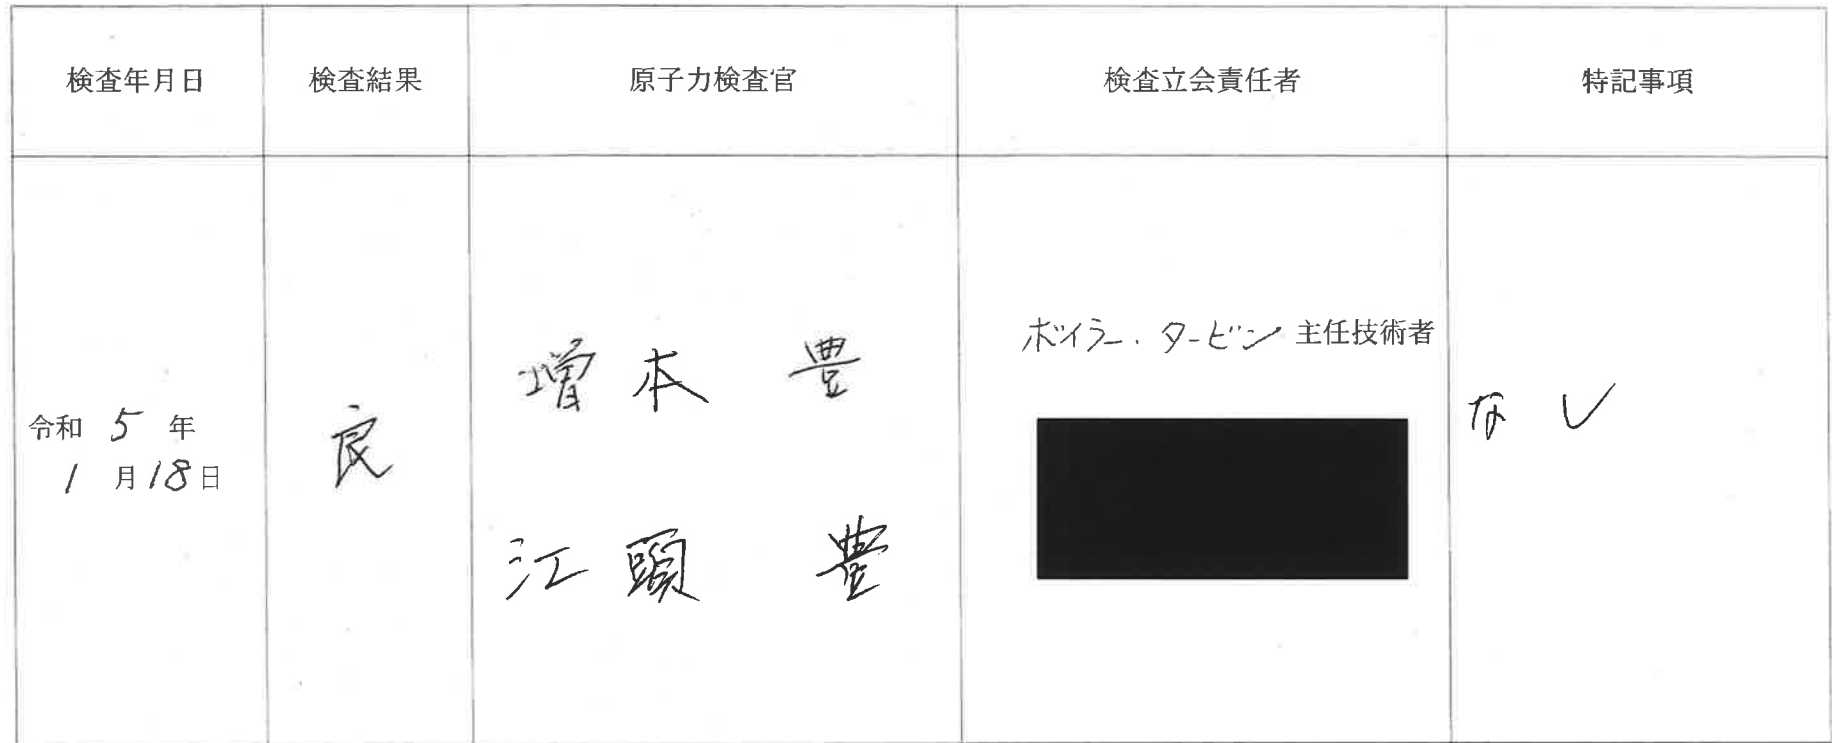 検査年月日 検査結果 原子力検査官 検査立会責任者 特記事項
令和 5 年
1 月 18 日
良
増本 豊
江頭 豊
ボイラー・タービン 主任技術者
なし